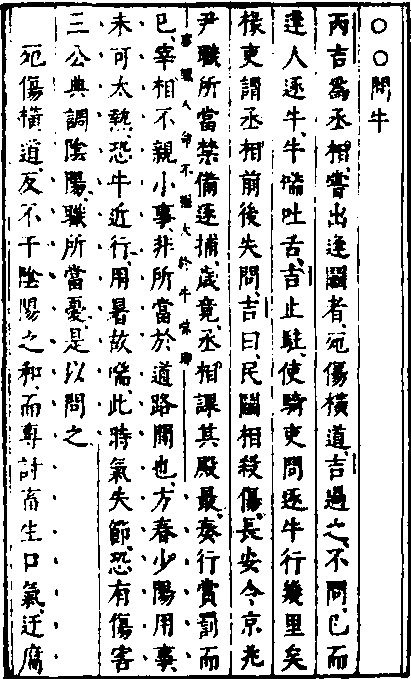 ○○問牛
丙吉爲丞相、嘗出逢鬭者、死傷橫道、吉過之、不問、已而
逢人逐牛、牛喘吐舌、吉止駐、使騎吏問逐牛行幾里矣
椽吏謂丞相前後失問、吉曰、民鬭相殺傷、長安令、京兆
尹職所當禁備逐捕、歲竟、丞相課其殿最、奏行賞罰而
已、宰相不親小事、非所當於道路問也、方春少陽用事
未可太熱、恐牛近行用暑故喘、此時氣失節、恐有傷害
三公典調陰陽、職所當憂、是以問之
死傷橫道、反不干陰陽之和、而專討畜生口氣、迂腐